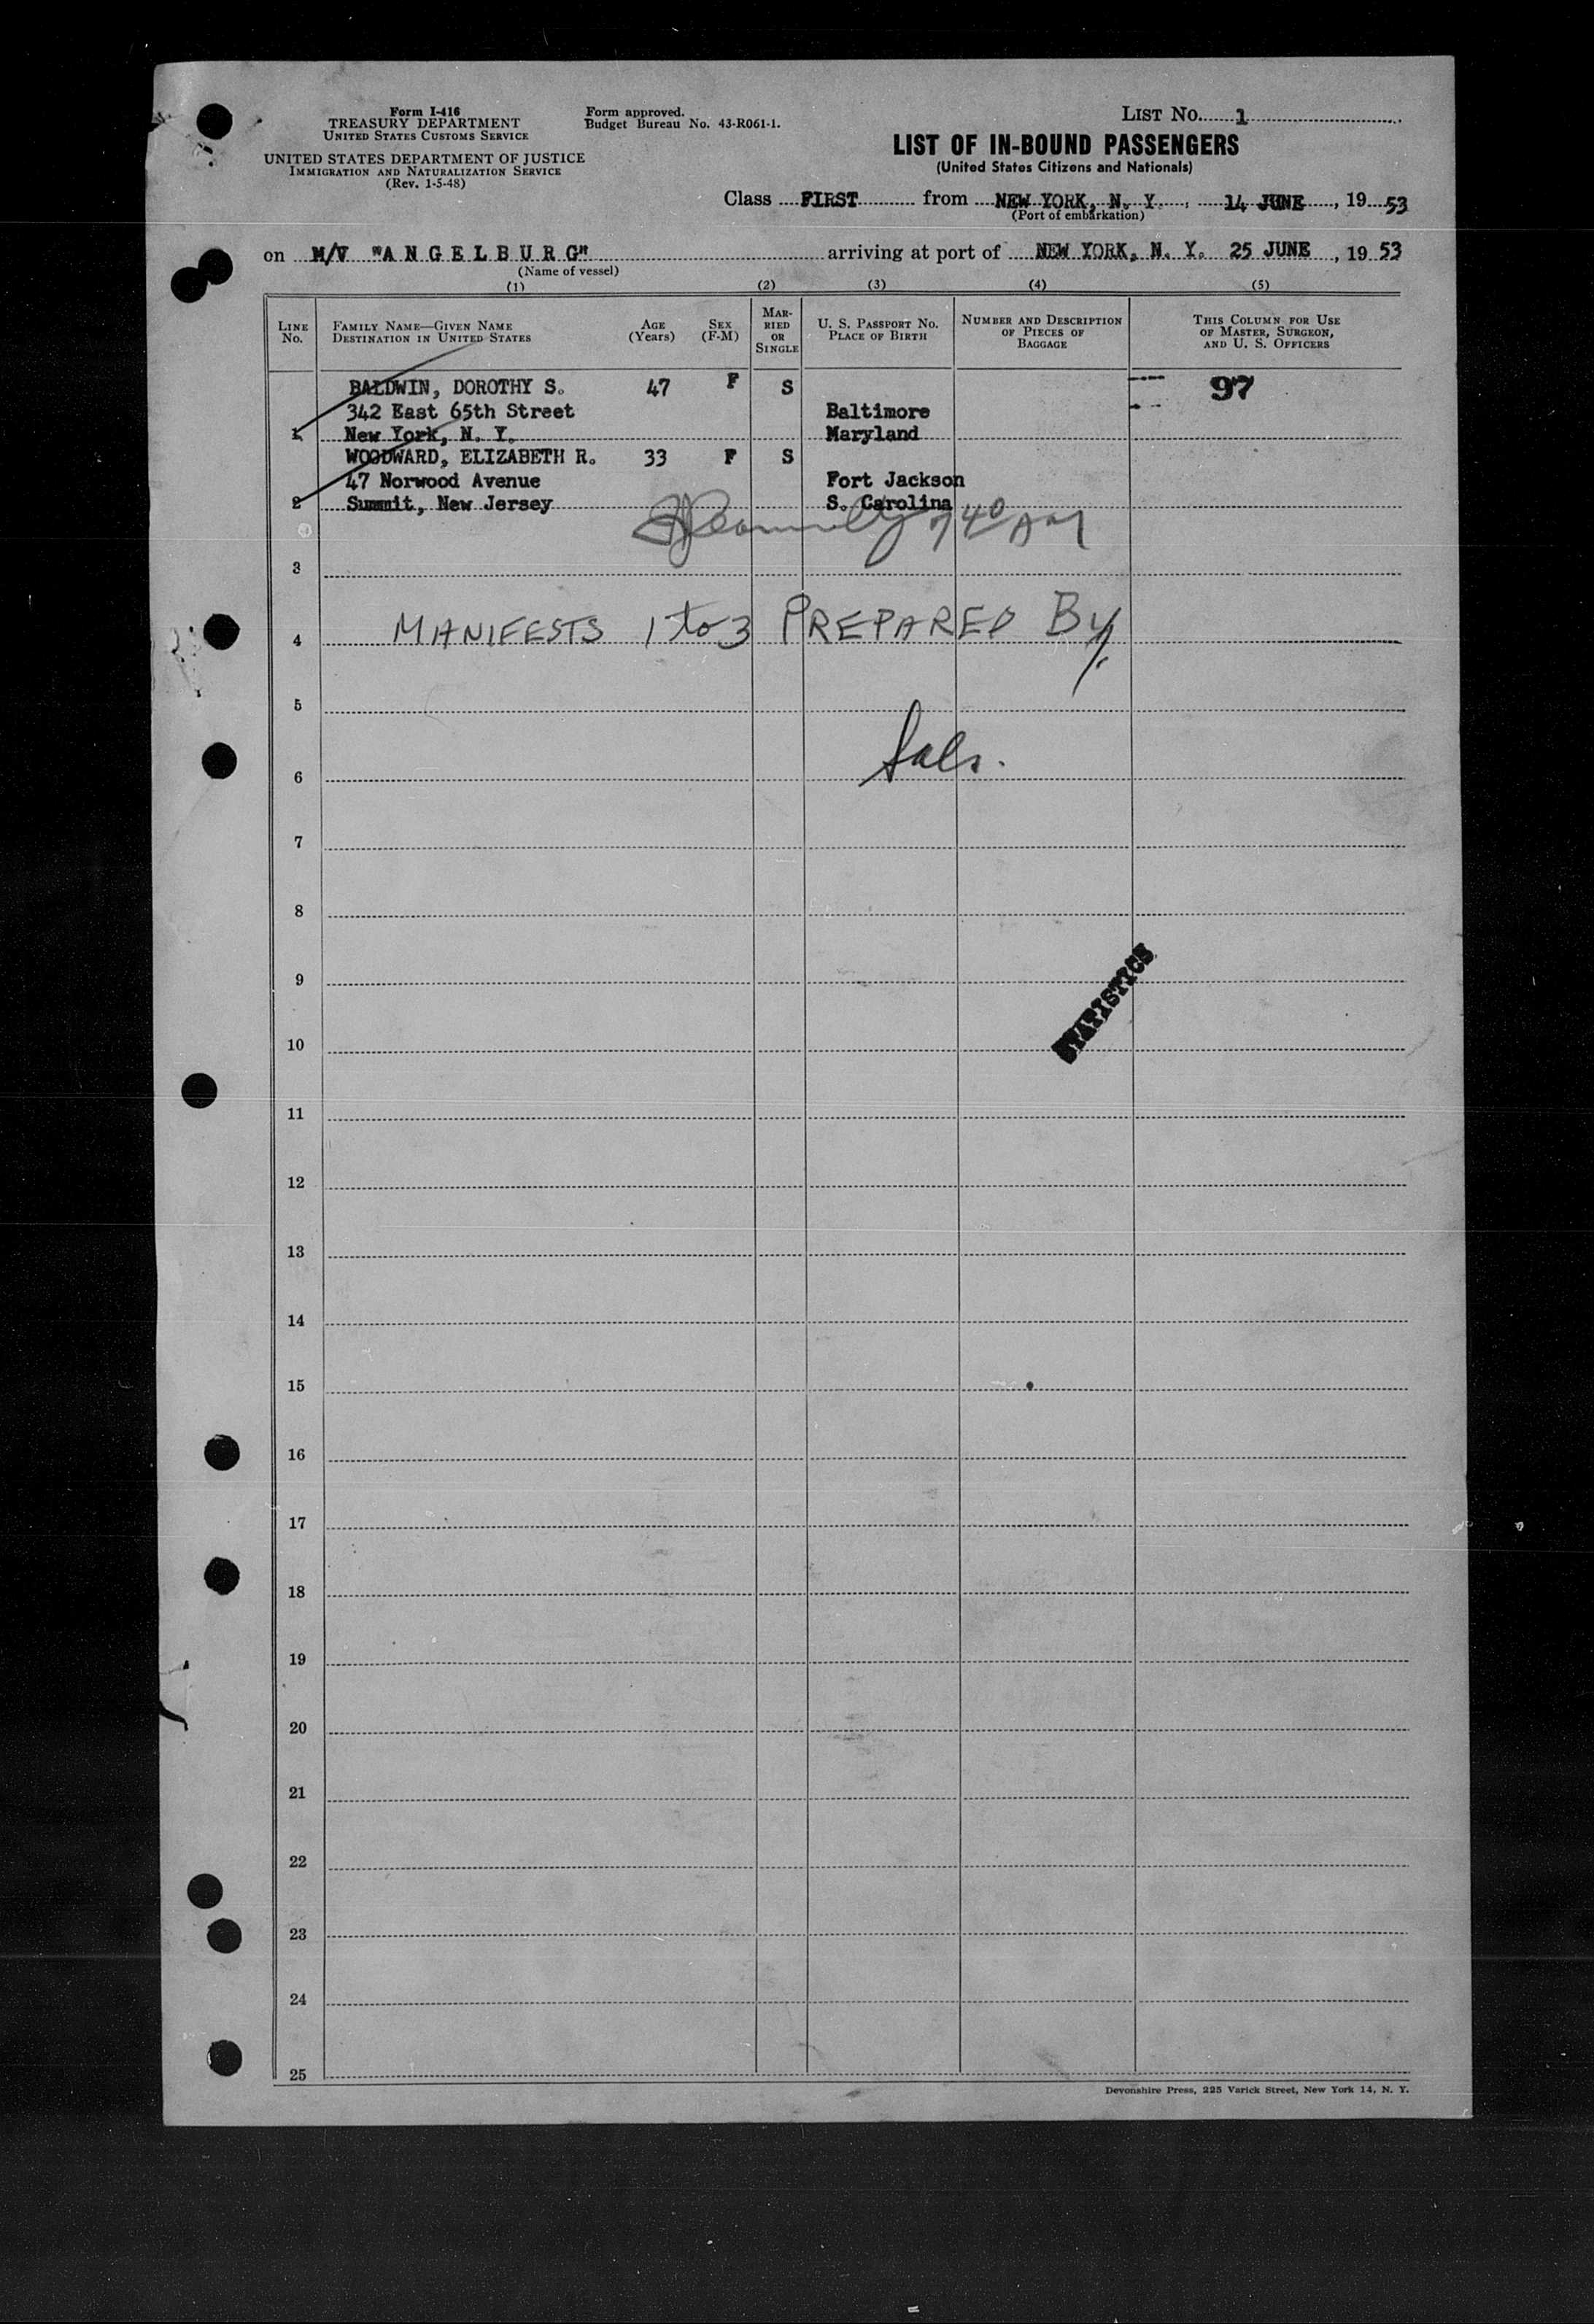 Form I-416
TREASURY DEPARTMENT
UNITED STATES CUSTOMS SERVICE
UNITED STATES DEPARTMENT OF JUSTICE
IMMIGRATION AND NATURALIZATION SERVICE
(Rev. 1-5-48)
Form approved.
Budget Bureau No. 43-R061-1.
LIST No. 1
LIST OF IN-BOUND PASSENGERS
(United States Citizens and Nationals)
Class FIRST from NEW YORK, N. Y., 14 JUNE, 19 53
(Port of embarkation)
on M/V "ANGELBURG" arriving at port of NEW YORK, N. Y. 25 JUNE, 19 53
(Name of vessel)
(1) (2) (3) (4) (5)
LINE No. FAMILY NAME—GIVEN NAME DESTINATION IN UNITED STATES AGE (Years) SEX (F-M) MARRIED OR SINGLE U. S. PASSPORT No. PLACE OF BIRTH NUMBER AND DESCRIPTION OF PIECES OF BAGGAGE THIS COLUMN FOR USE OF MASTER, SURGEON, AND U. S. OFFICERS
BALDWIN, DOROTHY S. 47 F S 97
342 East 65th Street Baltimore
1 New York, N. Y. Maryland
WOODWARD, ELIZABETH R. 33 F S
47 Norwood Avenue Fort Jackson
2 Summit, New Jersey S. Carolina
7 40 AM
3
4 MANIFESTS 1 to 3 PREPARED By
5
6
7
8
9
STATISTICS
10
11
12
13
14
15
16
17
18
19
20
21
22
23
24
25
Devonshire Press, 225 Varick Street, New York 14, N. Y.